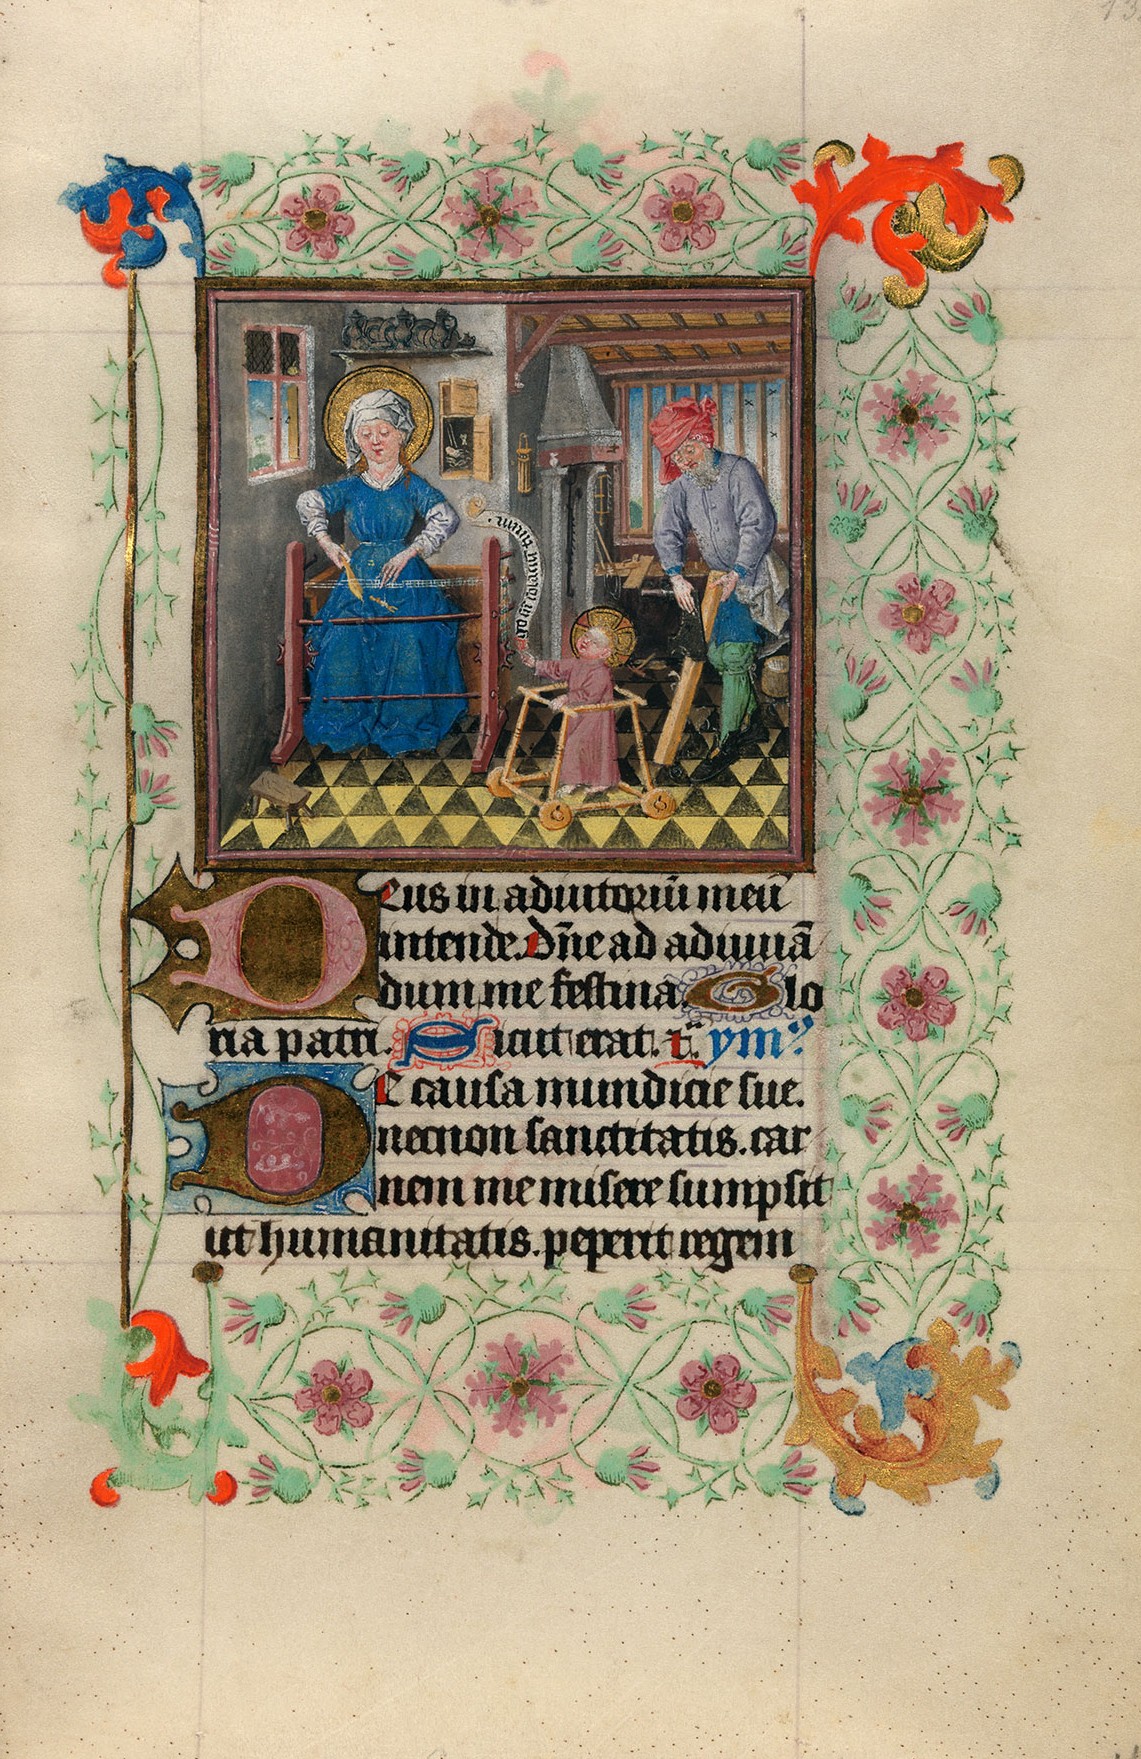 ego su solatiu tuum
Deus in adiutoriū meū
intende. Dn̄e ad adiuuā
dum me festina. Glo
ria patri. Sicut erat. ymꝰ
De causa mundicie sue.
necnon sanctitatis. car
nem me misere sumpsit
ut humanitatis. peperit regem